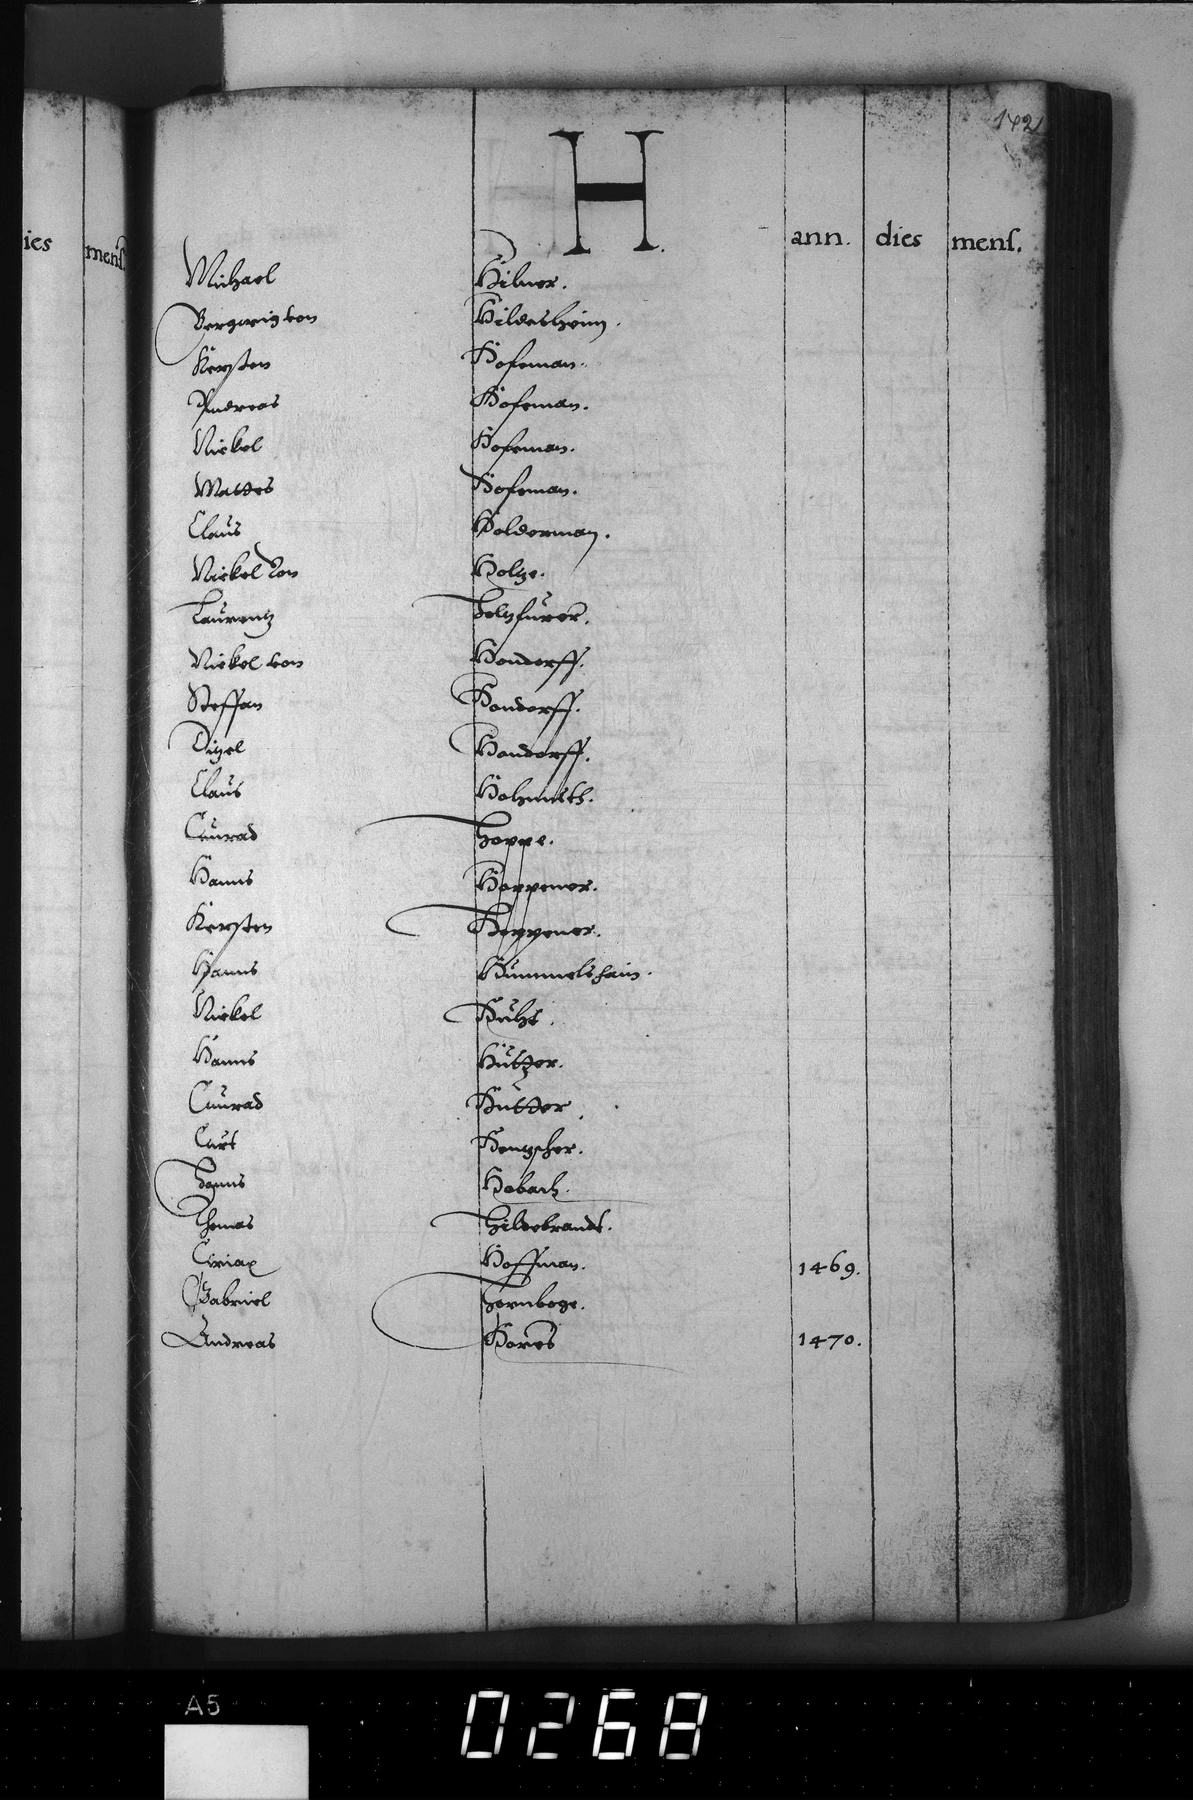 142
H.
ies menſ. ann. dies menſ.
Michael Hilner.
von Hildesheim.
Kersten Hofeman.
Andreas Hofeman.
Nickel Hofeman.
Mattes Hofeman.
Claus Holderman.
Nickel von Holtze.
Laurentz Holtzfurer.
Nickel von Hondorff.
Steffan Hondorff.
Titzel Hondorff.
Claus
Cunrad Hoppe.
Hanns Hoppener.
Kersten Hoppener.
Hanns Hummelshain.
Nickel
Hanns Hützer.
Cunrad Hutter
Curt Hentzscher.
Hanns Hobach.
Thomas Hildebrandt.
Ciriax Hoffman. 1469.
Gabriel Hornboge.
Andreas 1470.
A5
0268